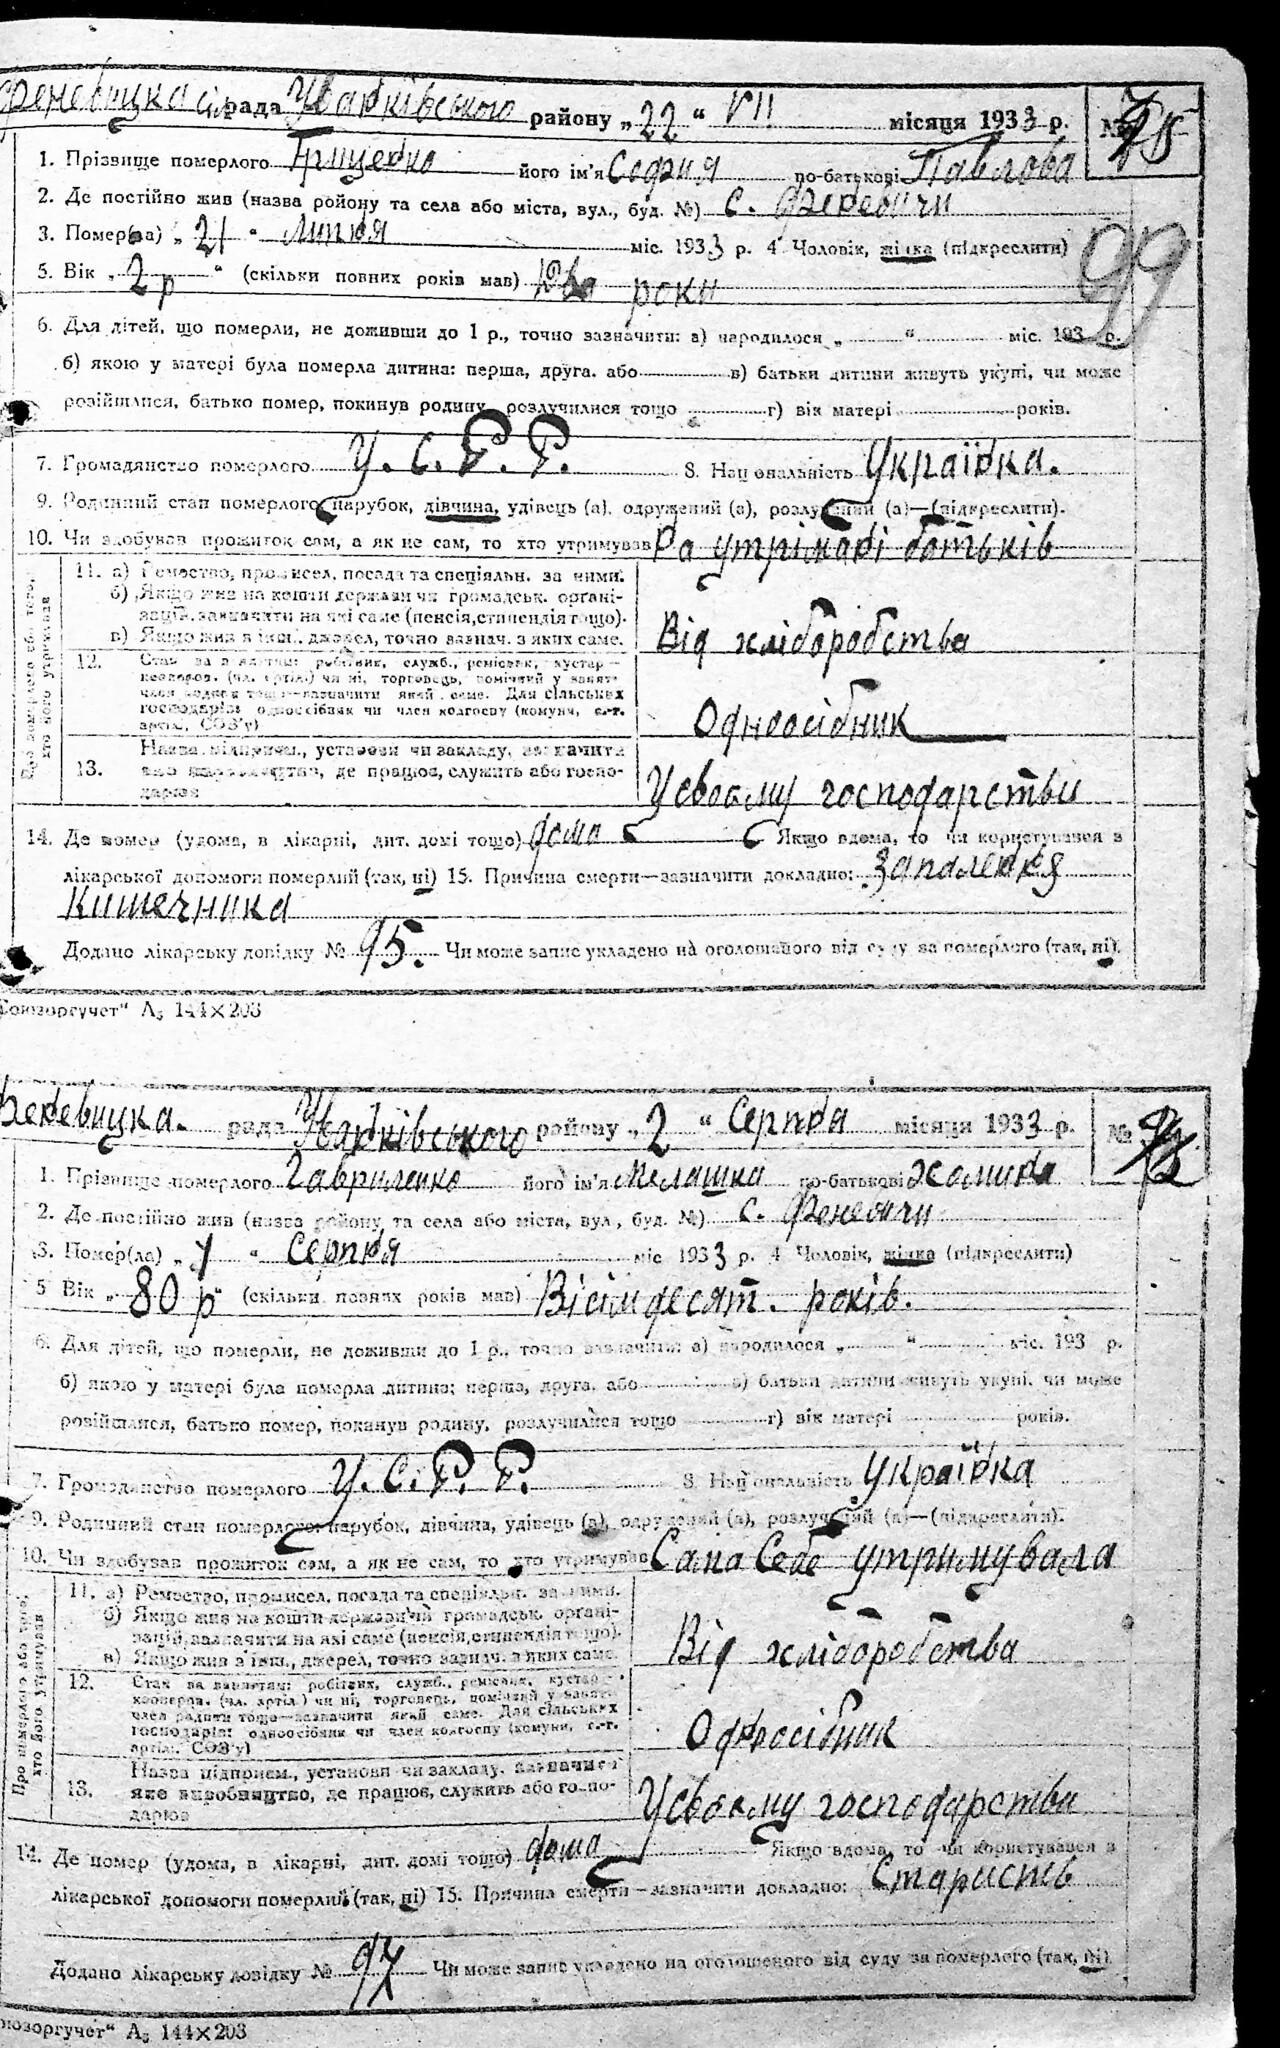 Феневицка сільрада Іванківського району „22“ VII місяця 1933 р. №
1. Прізвище померлого Грищенко його ім'я София по-батькові Павлова
2. Де постійно жив (назва району та села або міста, вул., буд. №) с. Феневичи
3. Помер(ла) „21“ Липня міс. 1933 р. 4 Чоловік, жінка (підкреслити)
99
5. Вік „2 р“ (скільки повних років мав) Два роки
6. Для дітей, що померли, не доживши до 1 р., точно зазначити: а) народилося „ “ міс. 193 р.
б) якою у матері була померла дитина: перша, друга, або в) батьки дитини живуть укупі, чи може
розійшлися, батько помер, покинув родину, розлучилися тощо г) вік матері років.
7. Громадянство померлого У.С.Р.Р. 8. Національність Українка.
9. Родинний стан померлого: парубок, дівчина, удівець (а), одружений (а), розлучений (а)—(підкреслити).
10. Чи здобував прожиток сам, а як не сам, то хто утримував На утрімані батьків
Про померлого або того, хто його утримував
11. а) Ремество, промисел, посада та спеціяльн. за ними.
б) Якщо жив на кошти держави чи громадськ. органі-
зацій, зазначити на які саме (пенсія, стипендія тощо).
в) Якщо жив з інш. джерел, точно зазнач. з яких саме.
Від хліборобства
12. Стан за заняттям: робітник, служб., ремісник, кустар—
коопєров. (чл. артіл.) чи ні, торговець, помічний у занят.
член родини тощо—зазначити який саме. Для сільських
господарів: одноосібник чи член колгоспу (комуни, с.-г.
артіл., СОЗ'у)
Одноосібник
13. Назва підприєм., установи чи закладу, зазначити
яке виробництво, де працює, служить або госпо-
дарює
Усвоєму господарстви
14. Де помер (удома, в лікарні, дит. домі тощо) дома Якщо вдома, то чи користувався з
лікарської допомоги померлий (так, ні) 15. Причина смерти—зазначити докладно: Запалення
Кишечника
Додано лікарську довідку № 95. Чи може запис укладено на оголошеного від суду за померлого (так, ні).
Союзоргучет“ А₅ 144×203
Феневицка. рада Іванківського району „2“ Серпня місяця 1933 р. №
1. Прізвище померлого Гавриленко його ім'я Мелашка по-батькові Хомина
2. Де постійно жив (назва району та села або міста, вул., буд. №) с. Феневичи
3. Помер(ла) „1“ Серпня міс 1933 р. 4 Чоловік, жінка (підкреслити)
5 Вік „80 р“ (скільки повних років мав) Вісімдесят. років.
6. Для дітей, що померли, не доживши до 1 р., точно зазначити: а) народилося „ “ міс. 193 р.
б) якою у матері була померла дитина: перша, друга, або в) батьки дитини живуть укупі, чи може
розійшлися, батько помер, покинув родину, розлучилися тощо г) вік матері років.
7. Громадянство померлого У.С.Р.Р. 8. Національність Українка
9. Родинний стан померлого: парубок, дівчина, удівець (а), одружений (а), розлучений (а)—(підкреслити).
10. Чи здобував прожиток сам, а як не сам, то хто утримував Сама Себе утримувала
Про померлого або того, хто його утримував
11. а) Ремество, промисел, посада та спеціяльн. за ними.
б) Якщо жив на кошти держави чи громадськ. органі-
зацій, зазначити на які саме (пенсія, стипендія тощо).
в) Якщо жив з інш., джерел, точно зазнач. з яких саме.
Від хліборобства
12. Стан за заняттям: робітник, служб., ремісник, кустар—
кооперов. (чл. артіл.) чи ні, торговець, помічний у занят.
член родини тощо—зазначити який саме. Для сільських
господарів: одноосібник чи член колгоспу (комуни, с.-г.
артіл., СОЗ'у)
Одноосібник
13. Назва підприєм., установи чи закладу, зазначити
яке виробництво, де працює, служить або госпо-
дарює
Усвоєму господарства
14. Де помер (удома, в лікарні, дит. домі тощо) дома Якщо вдома, то чи користувався з
лікарської допомоги померлий (так, ні) 15. Причина смерти—зазначити докладно: Старисть
Додано лікарську довідку № 97 Чи може запис укладено на оголошеного від суду за померлого (так, ні)
юзоргучет“ А₅ 144×203